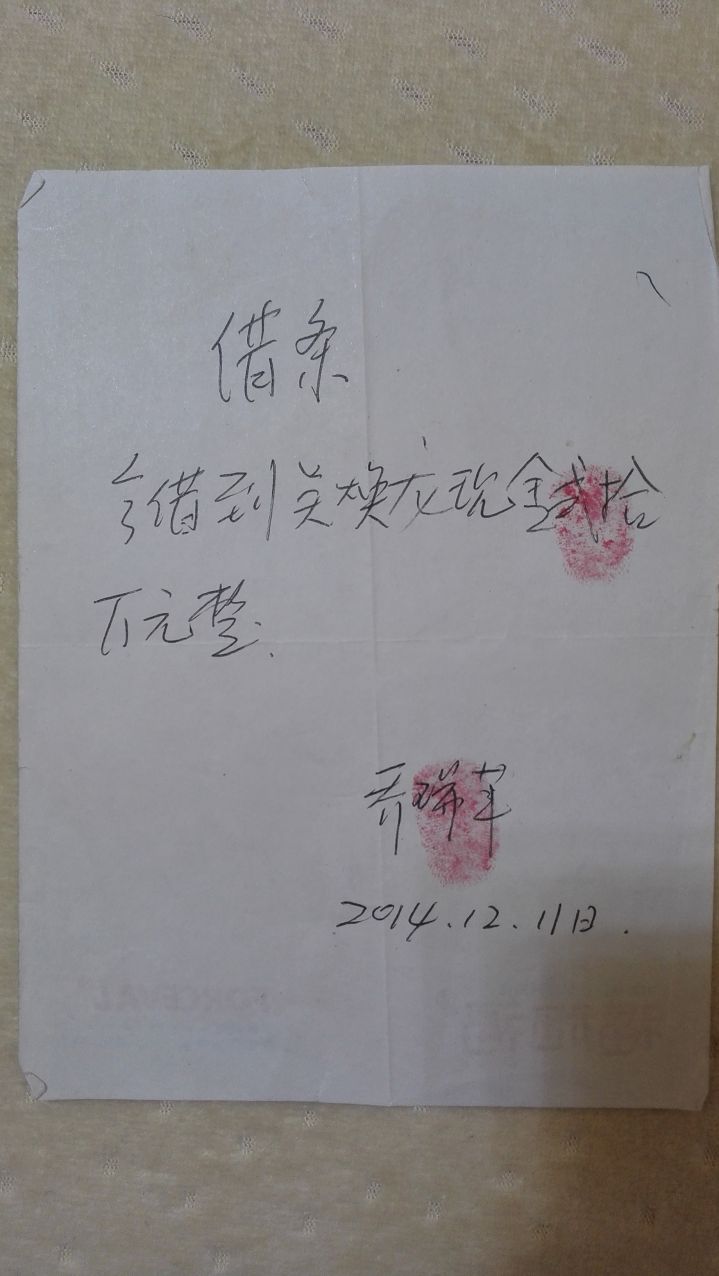 借条
今借到关焕龙现金贰拾
万元整.
乔瑞莲
2014.12.11日.
FORCEVAL